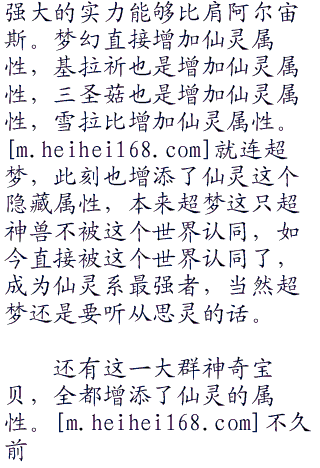 强大的实力能够比肩阿尔宙
斯。梦幻直接增加仙灵属
性，基拉祈也是增加仙灵属
性，三圣菇也是增加仙灵属
性，雪拉比增加仙灵属性。
[m.heihei168.com]就连超
梦，此刻也增添了仙灵这个
隐藏属性，本来超梦这只超
神兽不被这个世界认同，如
今直接被这个世界认同了，
成为仙灵系最强者，当然超
梦还是要听从思灵的话。
还有这一大群神奇宝
贝，全都增添了仙灵的属
性。[m.heihei168.com]不久
前